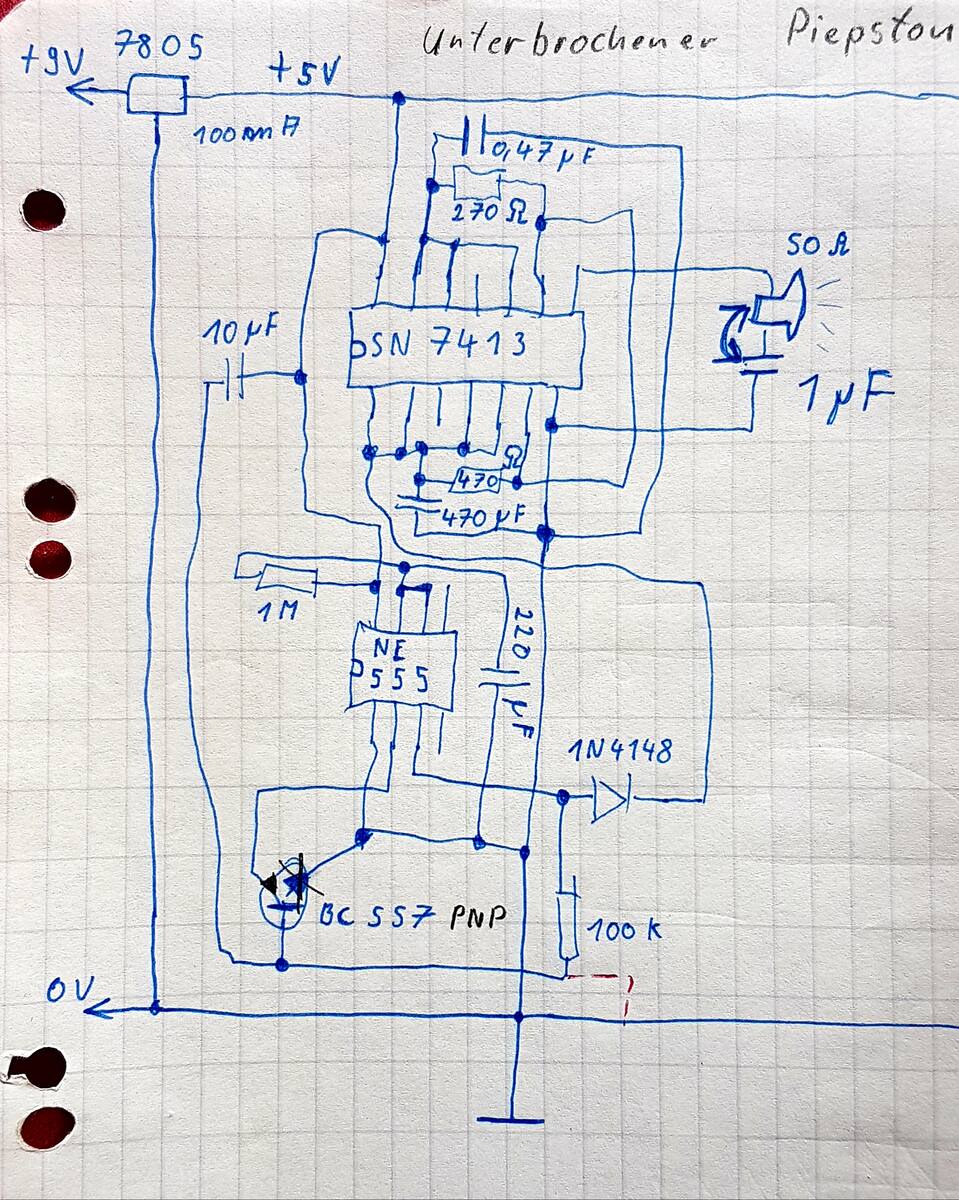 Unterbrochener Piepston
+9V 7805 +5V
100mA
0,47µF
270 Ω
50 Ω
10µF
SN 7413
1µF
Ω
470
470µF
1M
NE
555
220 µF
1N4148
BC 557 PNP
100k
0V